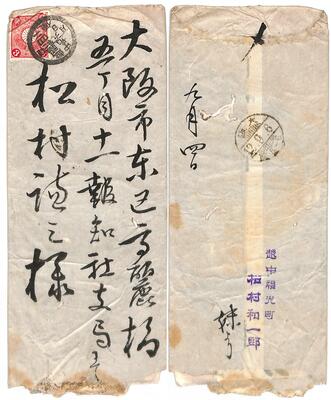 大阪市東区高麗橋
五丁目十一報知社支局ニて
松村謙三様
九月四日
越中福光町
松村和一郎